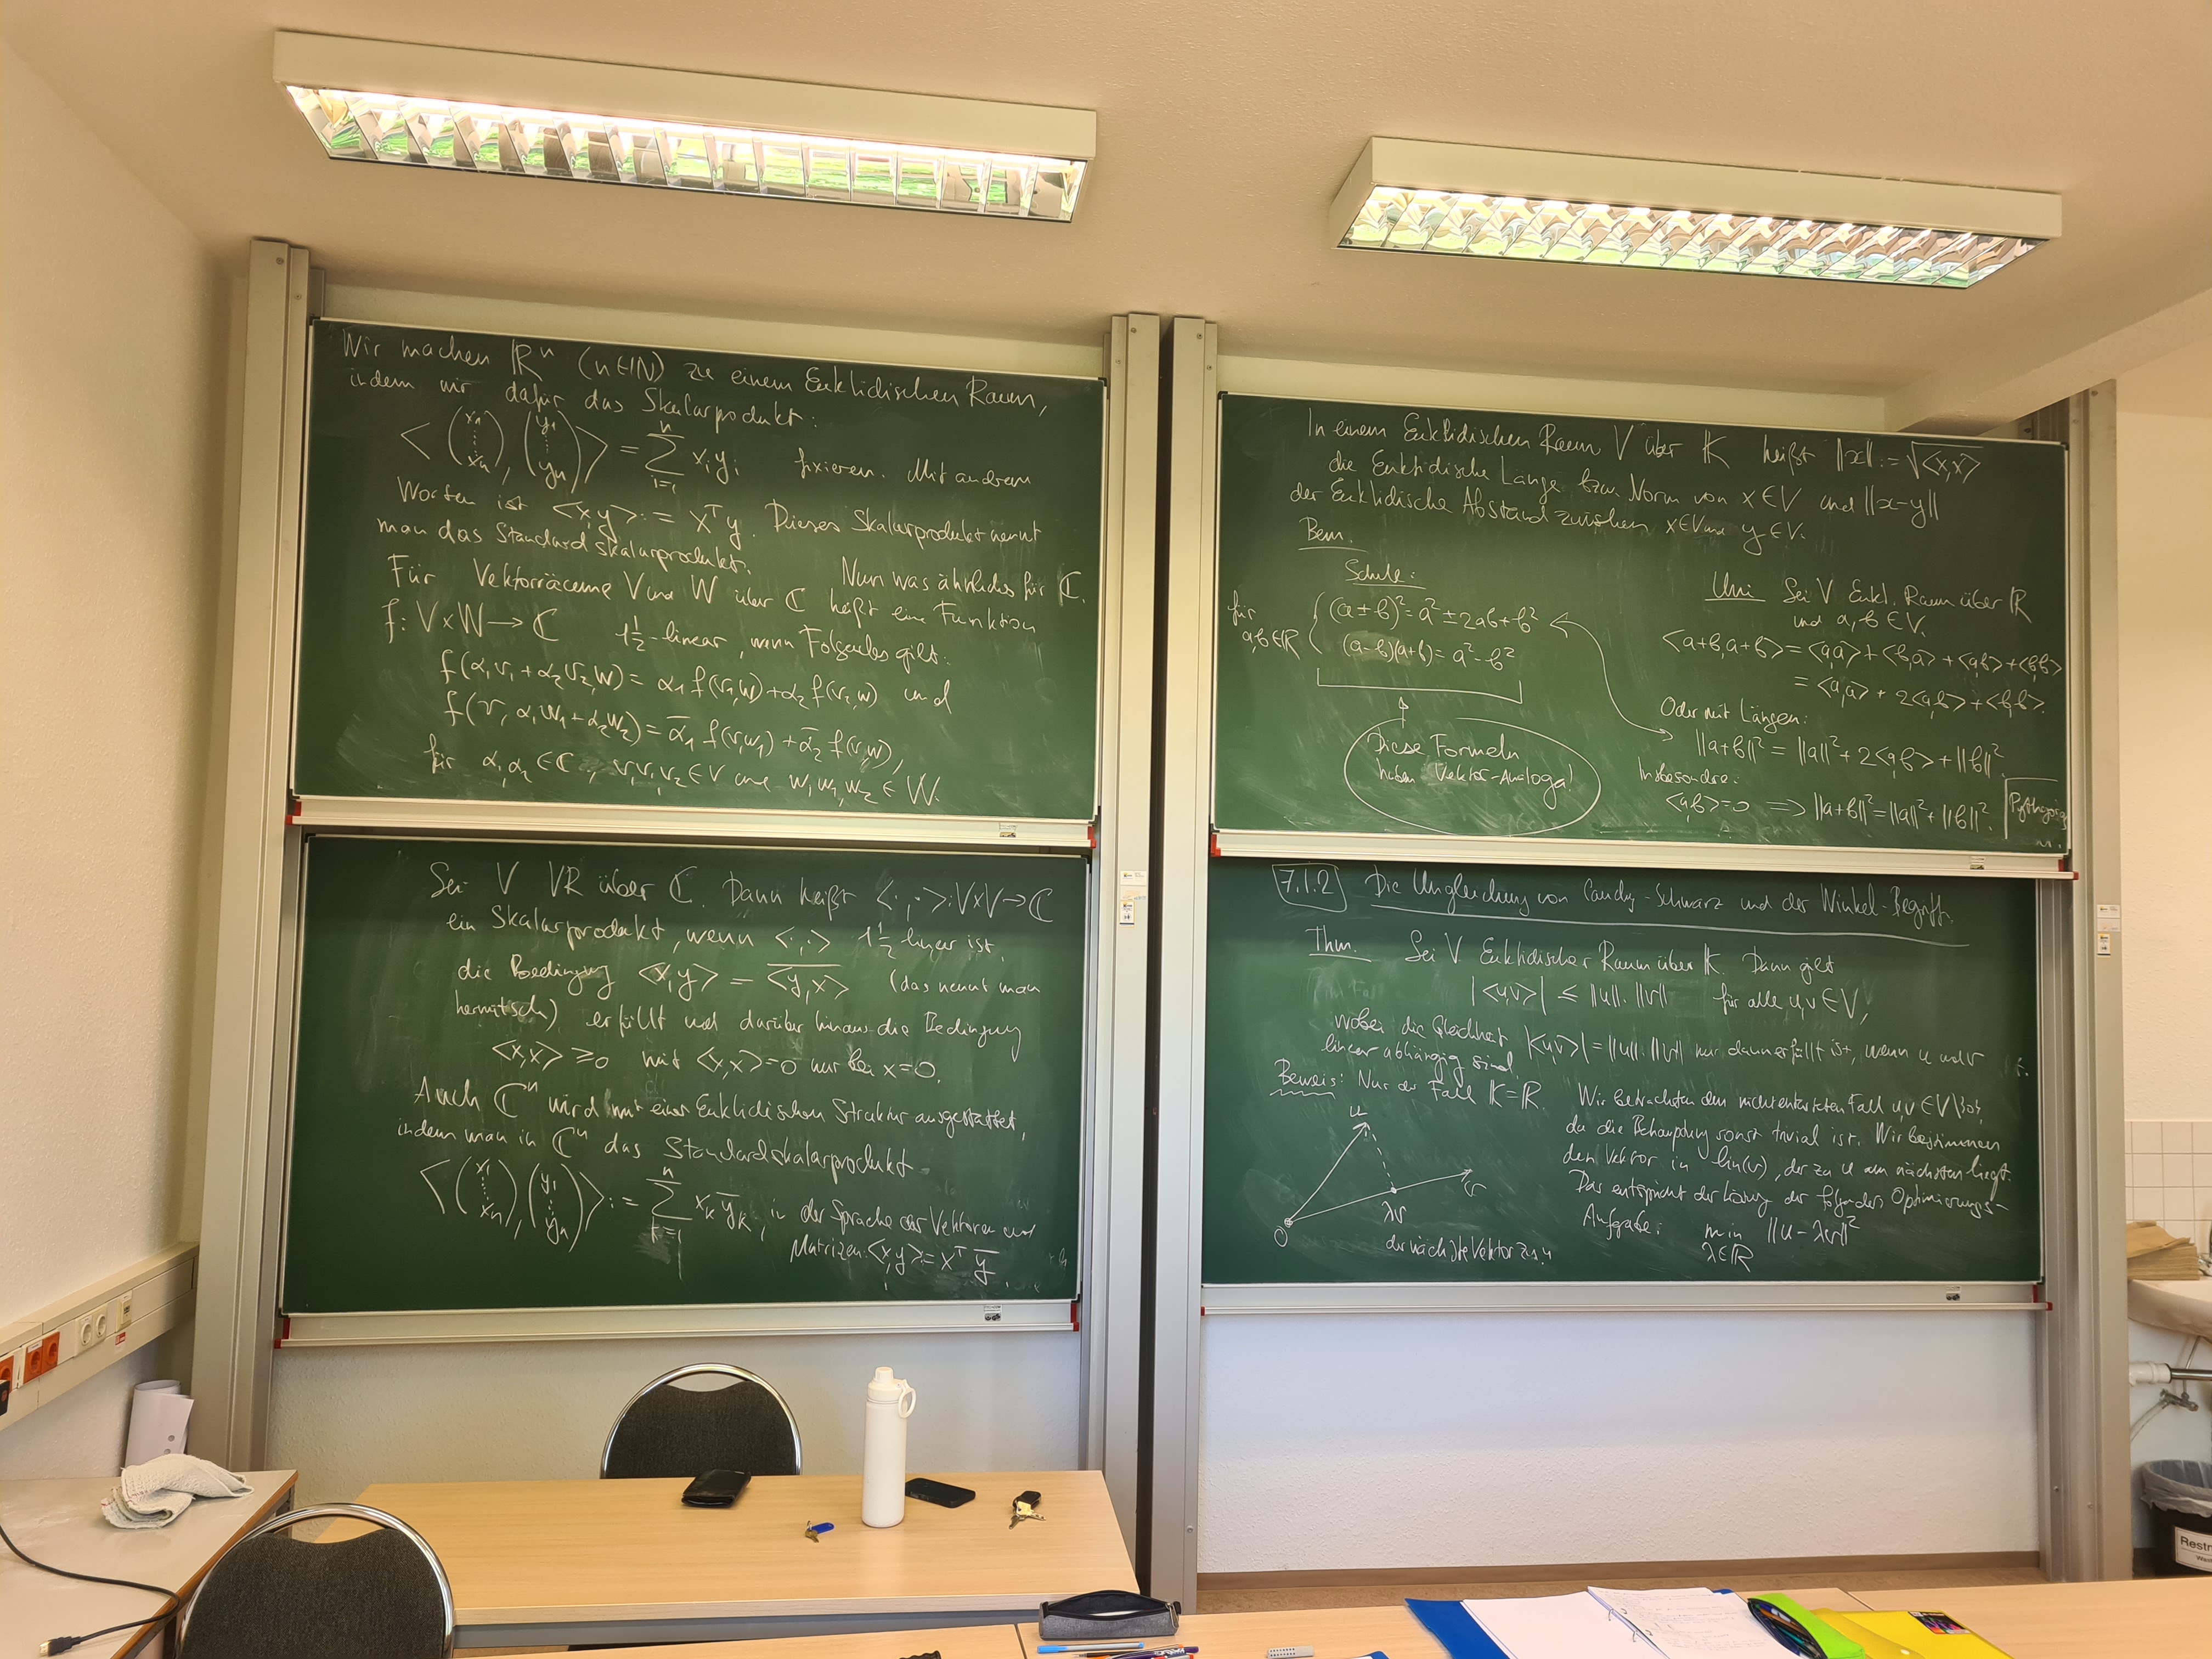 Wir machen ℝⁿ (n∈ℕ) zu einem Euklidischen Raum,
indem wir dafür das Skalarprodukt:
<(x₁ ⋮ xₙ), (y₁ ⋮ yₙ)> = ∑ᵢ₌₁ⁿ xᵢyᵢ fixieren. Mit anderen
Worten ist <x,y> := xᵀy. Dieses Skalarprodukt nennt
man das Standardskalarprodukt.
Nun was ähnliches für ℂ.
Für Vektorräume V und W über ℂ heißt eine Funktion
f: V×W → ℂ 1½-linear, wenn Folgendes gilt:
f(α₁v₁+α₂v₂,w) = α₁f(v₁,w)+α₂f(v₂,w) und
f(v, α₁w₁+α₂w₂) = α̅₁f(v,w₁)+α̅₂f(v,w₂),
für α₁,α₂∈ℂ, v,v₁,v₂∈V und w,w₁,w₂∈W.
Sei V VR über ℂ. Dann heißt <·,·>: V×V→ℂ
ein Skalarprodukt, wenn <·,·> 1½-linear ist,
die Bedingung <x,y> = \overline{<y,x>} (das nennt man
hermitsch) erfüllt und darüber hinaus die Bedingung
<x,x> ≥0 mit <x,x>=0 nur bei x=0.
Auch ℂⁿ wird mit einer Euklidischen Struktur ausgestattet,
indem man in ℂⁿ das Standardskalarprodukt
<(x₁ ⋮ xₙ), (y₁ ⋮ yₙ)> := ∑ₖ₌₁ⁿ xₖy̅ₖ, in der Sprache der Vektoren und
Matrizen: <x,y> = xᵀy̅
In einem Euklidischen Raum V über 𝕂 heißt ||x|| := √<x,x>
die Euklidische Länge bzw. Norm von x∈V und ||x-y||
der Euklidische Abstand zwischen x∈V und y∈V.
Bem.
Schule:
für
a,b∈ℝ
(a±b)² = a²±2ab+b²
(a-b)(a+b) = a²-b²
Diese Formeln
haben Vektor-Analoga!
Uni Sei V Eukl. Raum über ℝ
und a,b∈V.
<a+b,a+b> = <a,a>+<b,a>+<a,b>+<b,b>
= <a,a> + 2<a,b>+<b,b>.
Oder mit Längen:
||a+b||² = ||a||²+2<a,b>+||b||².
Insbesondere:
<a,b>=0 ⟹ ||a+b||²=||a||²+||b||².
Pythagoras
7.1.2 Die Ungleichung von Cauchy-Schwarz und der Winkel-Begriff.
Thm. Sei V Euklidischer Raum über 𝕂. Dann gilt
|<u,v>| ≤ ||u||·||v|| für alle u,v∈V,
wobei die Gleichheit |<u,v>|=||u||·||v|| nur dann erfüllt ist, wenn u und v
linear abhängig sind.
Beweis: Nur der Fall 𝕂=ℝ.
u
v
0
λv
der nächste Vektor zu u
Wir betrachten den nichtentarteten Fall u,v∈V\{0},
da die Behauptung sonst trivial ist. Wir bestimmen
den Vektor in lin(v), der zu u am nächsten liegt.
Das entspricht der Lösung der folgenden Optimierungs-
Aufgabe: min ||u-λv||²
λ∈ℝ